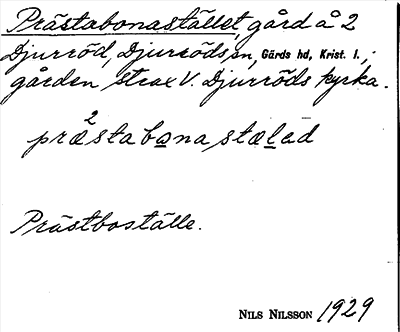 Prästabonastället, gård å 2
Djurröd, Djurröds sn, Gärds hd, Krist. l.,
gården strax V. Djurröds kyrka.
2
præstabona stælað
Prästboställe.
NILS NILSSON 1929